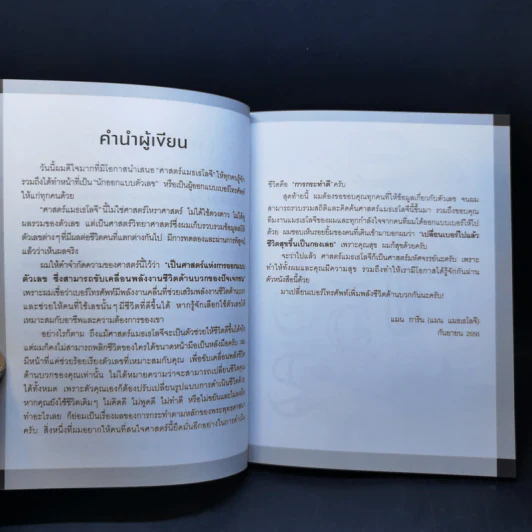 คำนำผู้เขียน
วันนี้ผมดีใจมากที่มีโอกาสนำเสนอ "ศาสตร์แมธเธโลจี" ให้ทุกคนรู้จัก
รวมถึงได้ทำหน้าที่เป็น "นักออกแบบตัวเลข" หรือเป็นผู้ออกแบบเบอร์โทรศัพท์
ให้แก่ทุกคนด้วย
"ศาสตร์แมธเธโลจี" นี้ไม่ใช่ศาสตร์โหราศาสตร์ ไม่ได้ใช้ดวงดาว ไม่ได้ดู
ผลรวมของตัวเลข แต่เป็นศาสตร์วิทยาศาสตร์ซึ่งผมเก็บรวบรวมข้อมูลสถิติ
ตัวเลขต่างๆ ที่มีผลต่อชีวิตคนที่แตกต่างกันไป มีการทดลองและผ่านการพิสูจน์
แล้วว่าเห็นผลจริง
ผมให้คำจำกัดความของศาสตร์นี้ไว้ว่า "เป็นศาสตร์แห่งการออกแบบ
ตัวเลข ซึ่งสามารถขับเคลื่อนพลังงานชีวิตด้านบวกของปัจเจกชน"
เพราะผมเชื่อว่าเบอร์โทรศัพท์มีพลังงานคลื่นที่ช่วยเสริมพลังงานชีวิตด้านบวก
และช่วยให้คนที่ใช้เลขนั้นๆ มีชีวิตที่ดีขึ้นได้ หากรู้จักเลือกใช้ตัวเลขให้
เหมาะสมกับอาชีพและความต้องการของเขา
อย่างไรก็ตาม ถึงแม้ศาสตร์แมธเธโลจีจะเป็นตัวช่วยให้ชีวิตดีขึ้นได้จริง
แต่ผมก็คงไม่สามารถพลิกชีวิตของใครได้ขนาดหน้ามือเป็นหลังมือครับ ผม
มีหน้าที่แค่ช่วยร้อยเรียงตัวเลขที่เหมาะสมกับคุณ เพื่อขับเคลื่อนพลังชีวิต
ด้านบวกของคุณเท่านั้น ไม่ได้หมายความว่าจะสามารถเปลี่ยนชีวิตคุณ
ได้ทั้งหมด เพราะตัวคุณเองก็ต้องปรับเปลี่ยนรูปแบบการดำเนินชีวิตด้วย
หากคุณยังใช้ชีวิตเดิมๆ ไม่คิดดี ไม่พูดดี ไม่ทำดี หรือไม่ขยันและไม่ลงมือ
ทำอะไรเลย ก็ย่อมเป็นเรื่องผลของการกระทำตามหลักของพระพุทธศาสนา
ครับ สิ่งหนึ่งที่ผมอยากให้คนที่สนใจศาสตร์นี้ยึดมั่นอีกอย่างในการดำเนิน
ชีวิตคือ "การกระทำดี" ครับ
สุดท้ายนี้ ผมต้องขอขอบคุณทุกคนที่ให้ข้อมูลเกี่ยวกับตัวเลข จนผม
สามารถรวบรวมสถิติและคิดค้นศาสตร์แมธเธโลจีนี้ขึ้นมา รวมถึงขอบคุณ
ทีมงานแมธเธโลจีของผมและทุกกำลังใจจากคนที่ผมได้เปลี่ยนเบอร์โทรศัพท์ไป
ด้วย ผมชอบเห็นรอยยิ้มของคนที่เดินเข้ามาบอกผมว่า "เปลี่ยนเบอร์ไปแล้ว
ชีวิตสุขขึ้นเป็นกองเลย" เพราะคุณสุข ผมก็สุขด้วยครับ
จะว่าไปแล้ว ศาสตร์แมธเธโลจีก็เป็นศาสตร์มหัศจรรย์นะครับ เพราะ
ทำให้ทั้งผมและคุณมีความสุข รวมถึงทำให้เรามีโอกาสได้รู้จักกันผ่าน
ตัวหนังสือนี้ด้วย
มาเปลี่ยนเบอร์โทรศัพท์เพิ่มพลังชีวิตด้านบวกกันนะครับ!
แมน การิน (แมน แมธเธโลจี)
กันยายน 2556